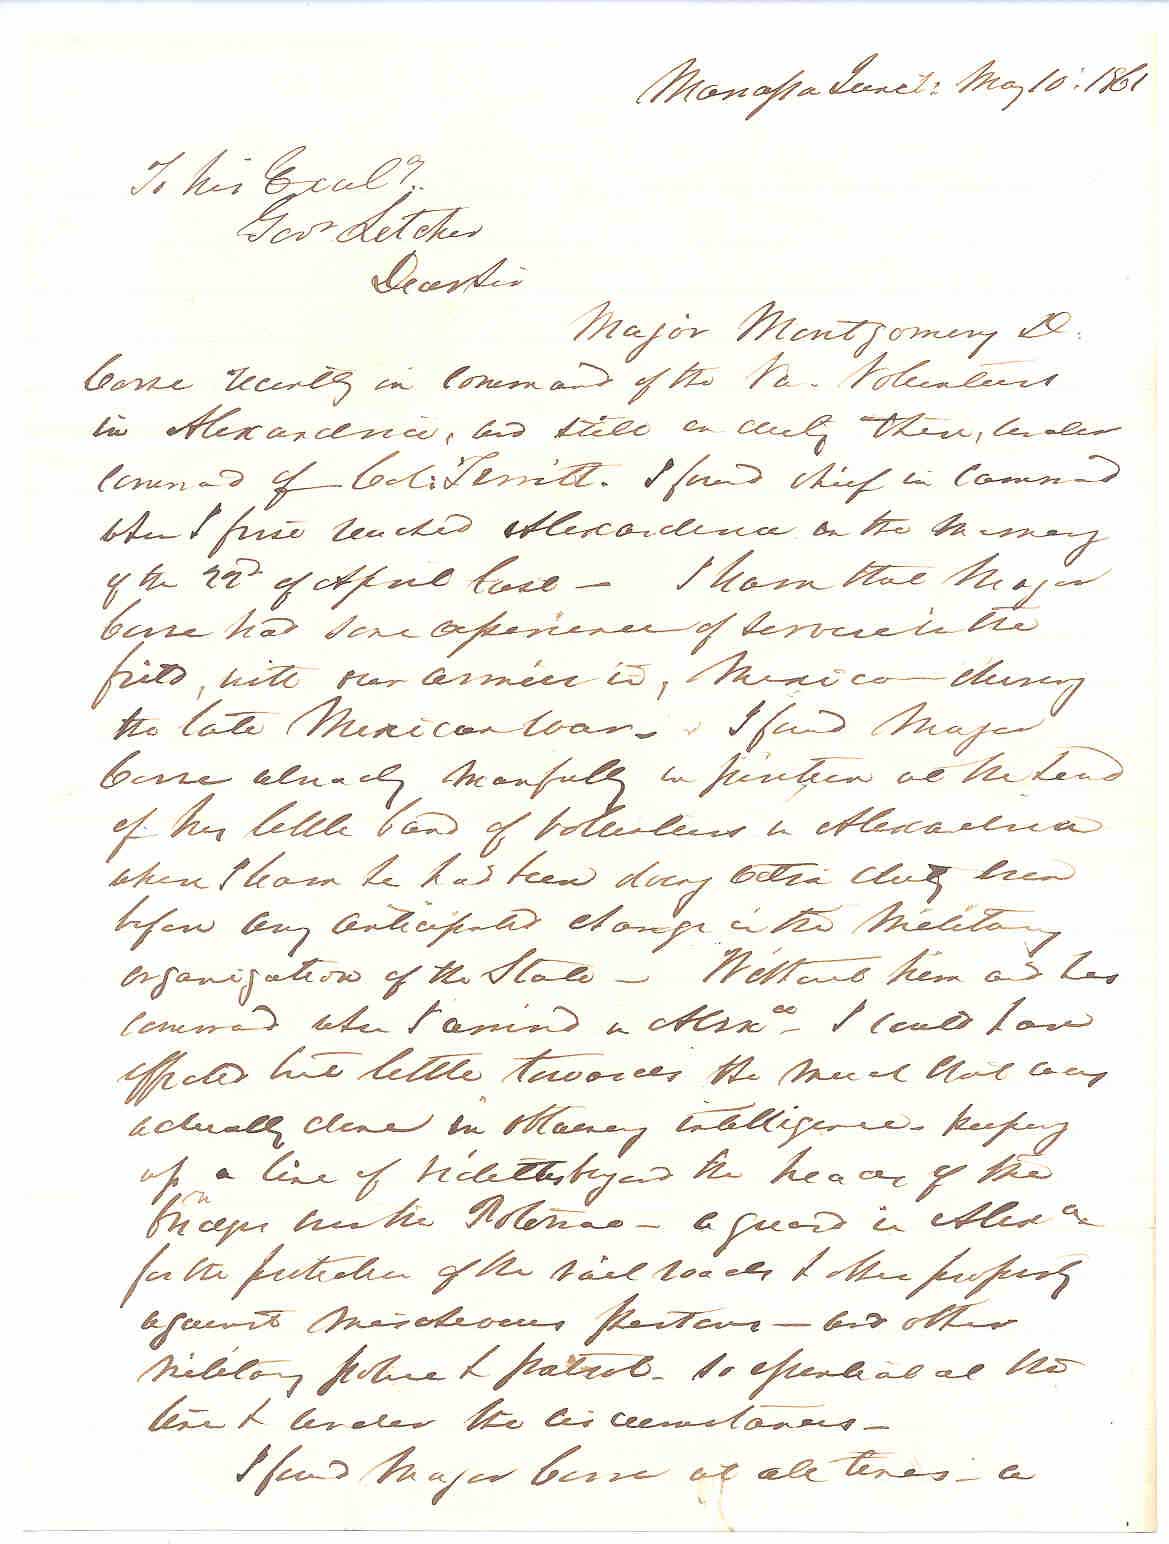 Manassa Junct: May 10: 1861
To his Excely.
Govr Letcher
Dear Sir
Major Montgomery D.
Corse recently in command of the Va. Volunteers
in Alexandria, and still on duty there, under
command of Col: Territt. I found chief in command
when I first reached Alexandria on the morning
of the 22d of April last — I learn that Major
Corse had some experience of service in the
field, with our armies in, Mexico — during
the late Mexican War — I found Major
Corse already manfully in position at the head
of his little band of Volunteers in Alexandria
where I learn he had been doing extra duty even
before any anticipated change in the Military
organization of the State — Without him and his
command when I arrived in Alexa — I could have
effected but little towards the much that was
actually done in obtaining intelligence - keeping
up a line of videttes beyond the heads of the
bridges over the Potomac — a guard in Alexa
for the protection of the rail roads & other property
against mischevous persons — and other
Military police & patrol - so essential at the
time & under the circumstances —
I found Major Corse at all times — a